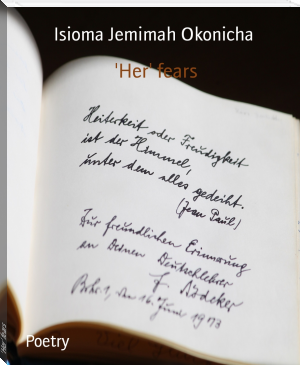 Isioma Jemimah Okonicha
'Her' fears
Heiterkeit oder Freudigkeit
ist der Himmel,
unter dem alles gedeiht.
(Jean Paul)
Zur freundlichen Erinnerung
an Deinen Deutschlehrer
F.
den 16. Juni 1973
Poetry
Her fears